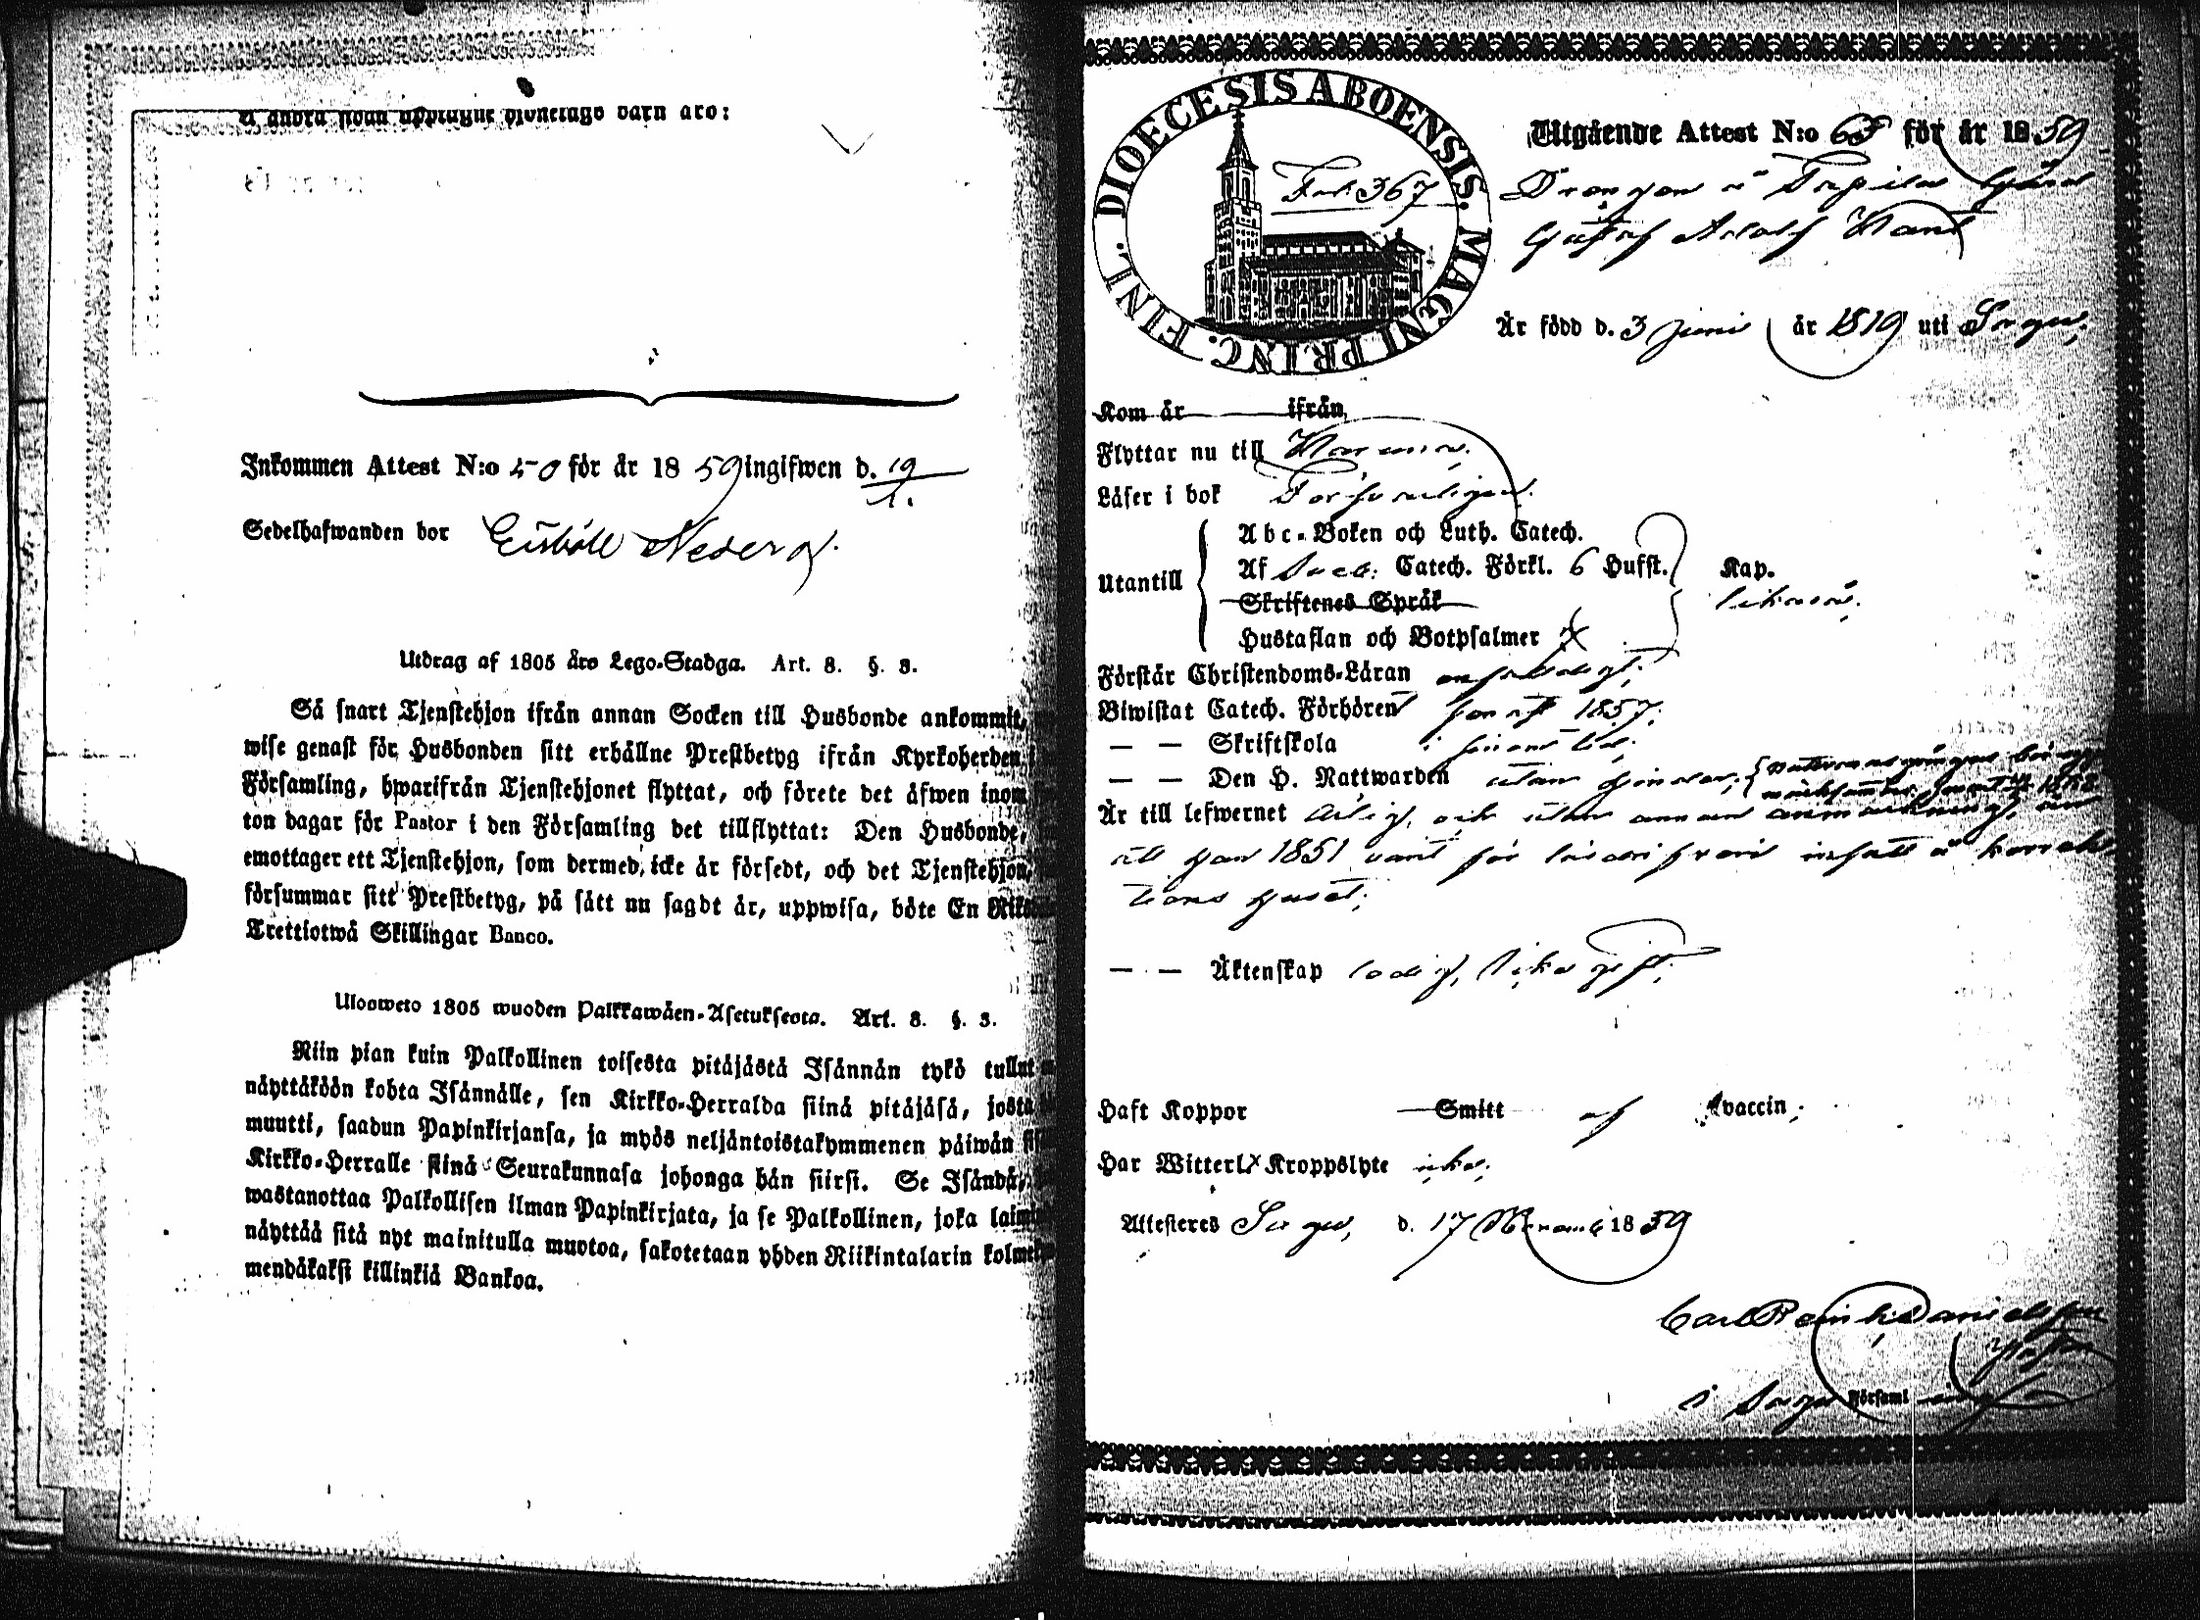 Inkommen Attest N:o 50 för år 1859 ingifwen d. 19/1.
Sedelhafwanden bor Eisböle Nederg.
Utdrag af 1805 års Lego-Stadga. Art. 8. §. 3.
Så snart Tjenstehjon ifrån annan Socken till Husbonde ankommit,
wise genast för Husbonden sitt erhållne Prestbetyg ifrån Kyrkoherden
Församling, hwarifrån Tjenstehjonet flyttat, och förete det äfwen inom
ton dagar för Pastor i den Församling det tillflyttat: Den Husbonde,
emottager ett Tjenstehjon, som dermed icke är försedt, och det Tjenstehjon,
försummar sitt Prestbetyg, på sätt nu sagdt är, uppwisa, böte En
Trettiotwå Skillingar Banco.
Ulosweto 1805 wuoden Palkkawäen-Asetuksesta. Art. 8. §. 3.
Niin pian kuin Palkollinen toisesta pitäjästä Isännän tykö tullut
näyttäköön kohta Isännälle, sen Kirkko-Herralda siinä pitäjäsä, josta
muutti, saadun Papinkirjansa, ja myös neljäntoistakymmenen päiwän
Kirkko-Herralle siinä Seurakunnasa johonga hän siirsi. Se Isändä,
wastanottaa Palkollisen ilman Papinkirjata, ja se Palkollinen, joka
näyttää sitä nyt mainitulla muotoa, sakotetaan yhden Riikintalarin
mendäkaksi killinkiä Bankoa.
DIOECESIS ABOENSIS. MAGNI PRINC. FINL.
Fol. 367
Utgående Attest N:o för år 1859
Drängen å
Gustaf Adolf
Är född d. 3 Juni år 1819 uti Sagu,
Kom år ifrån
Flyttar nu till
Läser i bok Försvarligen.
Utantill
Abc-Boken och Luth. Catech.
Af Sveb. Catech. Förkl. 6 Hufst.
Skriftenes Språk
Hustaflan och Botpsalmer
Kap.
likaså.
Förstår Christendoms-Läran
Biwistat Catech. Förhören 1857.
— — Skriftskola i sinom tid.
— — Den H. Nattwarden utan hinder,
Är till lefwernet ärlig, och utan annan anmärkning, än
att han 1851 varit för lösdrifveri insatt å korrek-
tions huset.
— — Äktenskap ledig, icke gift.
Haft Koppor Smitt af vaccin.
Har Witterl. Kroppslyte icke.
Attesteres Sagu, d. 17 1859
Carl Danielsson
i Sagu Församling